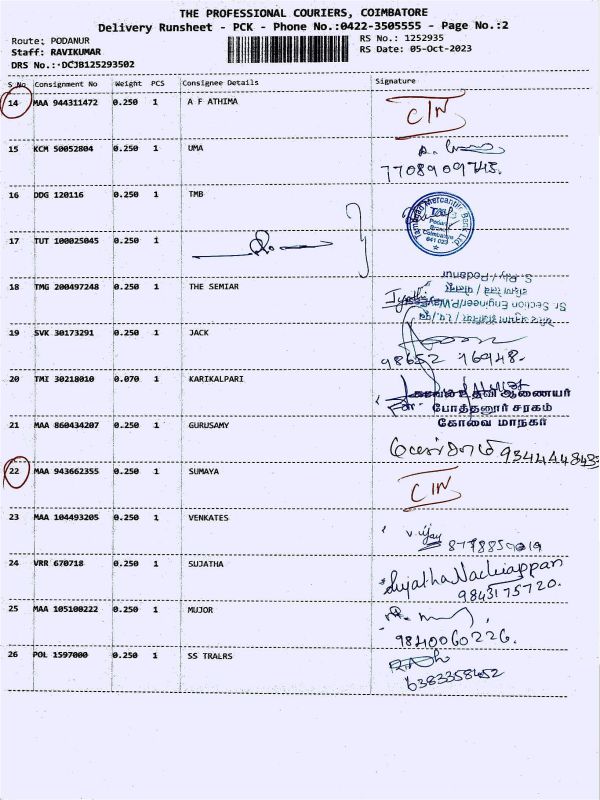 THE PROFESSIONAL COURIERS, COIMBATORE
Delivery Runsheet - PCK - Phone No.:0422-3505555 - Page No.:2
Route: PODANUR
RS No.: 1252935
Staff: RAVIKUMAR
RS Date: 05-Oct-2023
DRS No.:-DCJB125293502
S No Consignment No Weight PCS Consignee Details Signature
14 MAA 944311472 0.250 1 A F ATHIMA C/N
15 KCM 50052804 0.250 1 UMA
7708909745.
16 DDG 120116 0.250 1 TMB
Tamilnad Mercantile Bank Ltd.
TMB
Podanur
Branch
Coimbatore
641 023
17 TUT 100025045 0.250 1
18 TMG 200497248 0.250 1 THE SEMIAR Jyothi
Sr Section Engineer/P.Way
S. Rly / Podanur
19 SVK 30173291 0.250 1 JACK
98652 16948.
20 TMI 30218010 0.070 1 KARIKALPARI
காவல் உதவி ஆணையர்
போத்தனூர் சரகம்
கோவை மாநகர்
21 MAA 860434207 0.250 1 GURUSAMY
22 MAA 943662355 0.250 1 SUMAYA C/N
23 MAA 104493205 0.250 1 VENKATES Vijay
24 VRR 670718 0.250 1 SUJATHA Sujatha Nachiappan
9843175720.
25 MAA 105100222 0.250 1 MUJOR
9840060226.
26 POL 1597000 0.250 1 SS TRALRS
6383358452